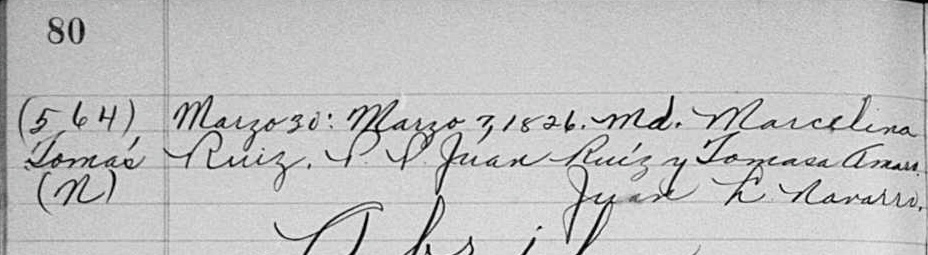 80
(564) Marzo 30: Marzo 7, 1826. Md. Marcelina
Tomás Ruiz. P. P. Juan Ruíz y Tomasa Amar.
(N) Juan L. Navarro.
Abril